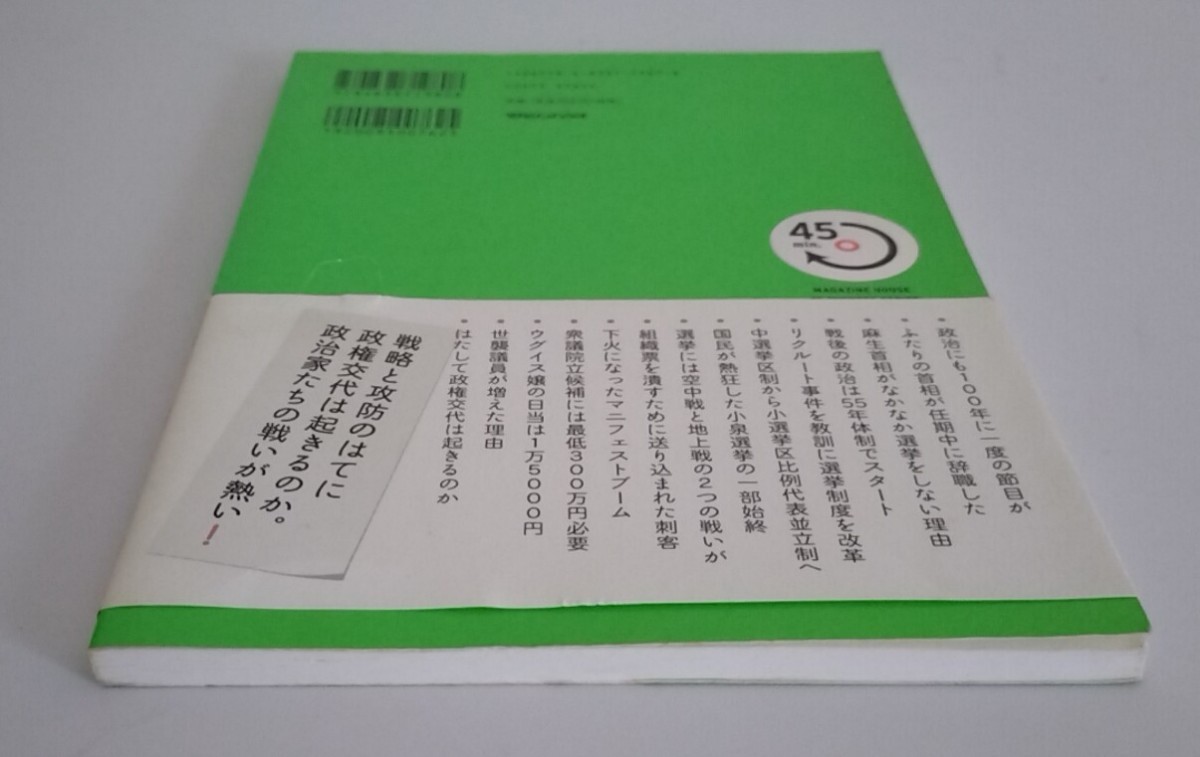 45
min.
MAGAZINE HOUSE
• 政治にも100年に一度の節目が
• ふたりの首相が任期中に辞職した
• 麻生首相がなかなか選挙をしない理由
• 戦後の政治は55年体制でスタート
• リクルート事件を教訓に選挙制度を改革
• 中選挙区制から小選挙区比例代表並立制へ
• 国民が熱狂した小泉選挙の一部始終
• 選挙には空中戦と地上戦の2つの戦いが
• 組織票を潰すために送り込まれた刺客
• 下火になったマニフェストブーム
• 衆議院立候補には最低300万円必要
• ウグイス嬢の日当は1万5000円
• 世襲議員が増えた理由
• はたして政権交代は起きるのか
戦略と攻防のはてに
政権交代は起きるのか。
政治家たちの戦いが熱い!